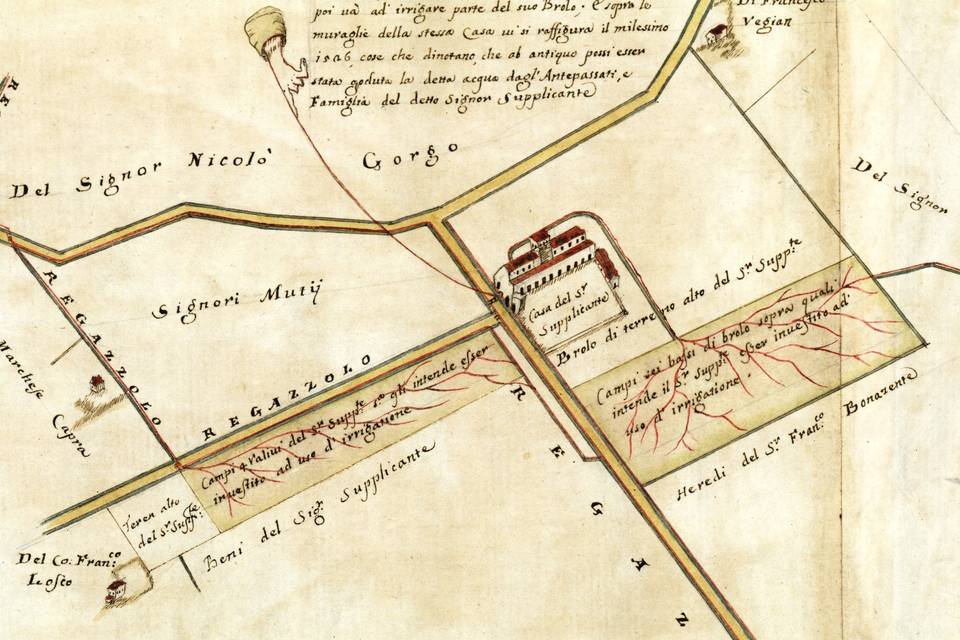 poi và ad' irrigare parte del suo Brolo. E sopra le
muraglie della stessa Casa ui si raffigura il milesimo
1506, cose che dinotano, che ab antiquo possi esser
stata goduta la detta acqua dagl'Antepassati, e
Famiglia del detto Signor Supplicante
Di Francesco
Vegian
RE
Del Signor Nicolò Gorgo
Del Signor
Signori Mutij
REGAZZOLO
Marchese
Capra
Casa del Sr.
Supplicante
Brolo di terreno alto del Sr. Suppte.
Campi sei bassi di brolo sopra quali
intende il Sr. Suppte. esser inuestito ad
uso d' irrigatione.
REGAZZOLO
Campi 4 ualiui del Sr. Suppte. gli intende esser
inuestito ad uso d' irrigatione
REGAZ
Heredi del Sr. Franco. Bonazente
Teren alto
del Sr. Suppte.
Beni del Sigr. Supplicante
Del Co. Franco.
Losco